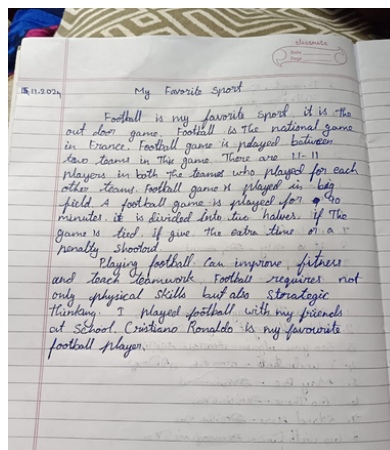 classmate
Date
Page
15.11.2024
My Favorite Sport
Football is my favorite sport it is the
out door game. Football is The national game
in France. Football game is played between
two teams in This game. There are 11-11
players in both The teams who played for each
other teams. Football game is played in big
field. A football game is played for 90
minutes. it is divided into two halves. if The
game is tied. if give the extra time or a
penalty shootout.
Playing football. Can improve fitness
and teach teamwork. Football requires not
only physical skills but also Storategic
thinking. I played football with my friends
at School. Cristiano Ronaldo is my favourite
football player.